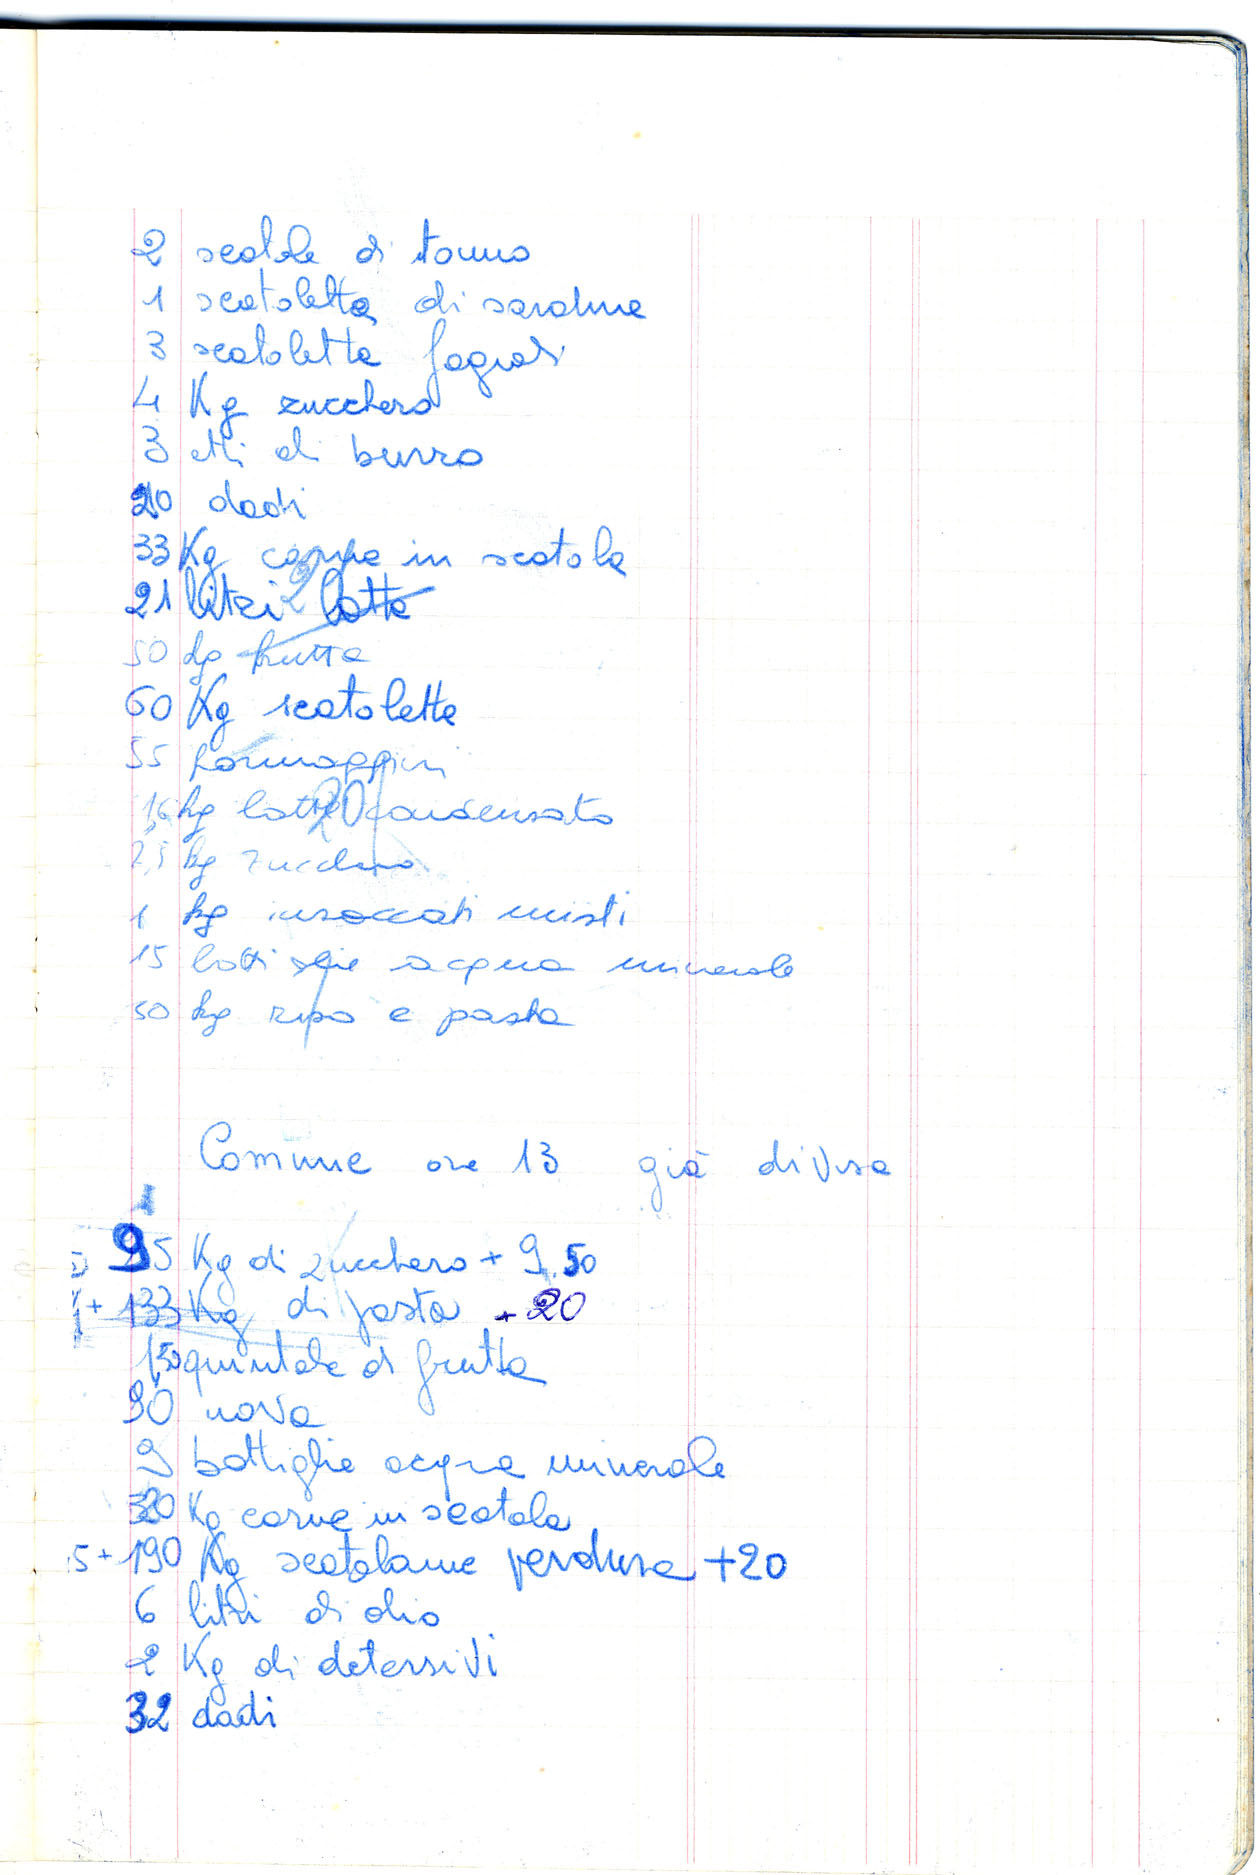 2 scatole di tonno
1 scatoletta di sardine
3 scatolette fagioli
4 Kg zucchero
3 etti di burro
20 dadi
33 Kg carne in scatola
21 litri latte
50 kg frutta
60 Kg scatolette
55 formaggini
1,5 kg latte condensato
2,5 kg zucchero
1 kg insaccati misti
15 bottiglie acqua minerale
50 kg riso e pasta
Comune ore 13 già divisa
95 Kg di zucchero + 9.50
+ 133 Kg di pasta + 20
1,50 quintale di frutta
90 uova
9 bottiglie acqua minerale
320 Kg carne in scatola
5 + 190 Kg scatolame verdura + 20
6 litri di olio
2 Kg di detersivi
32 dadi